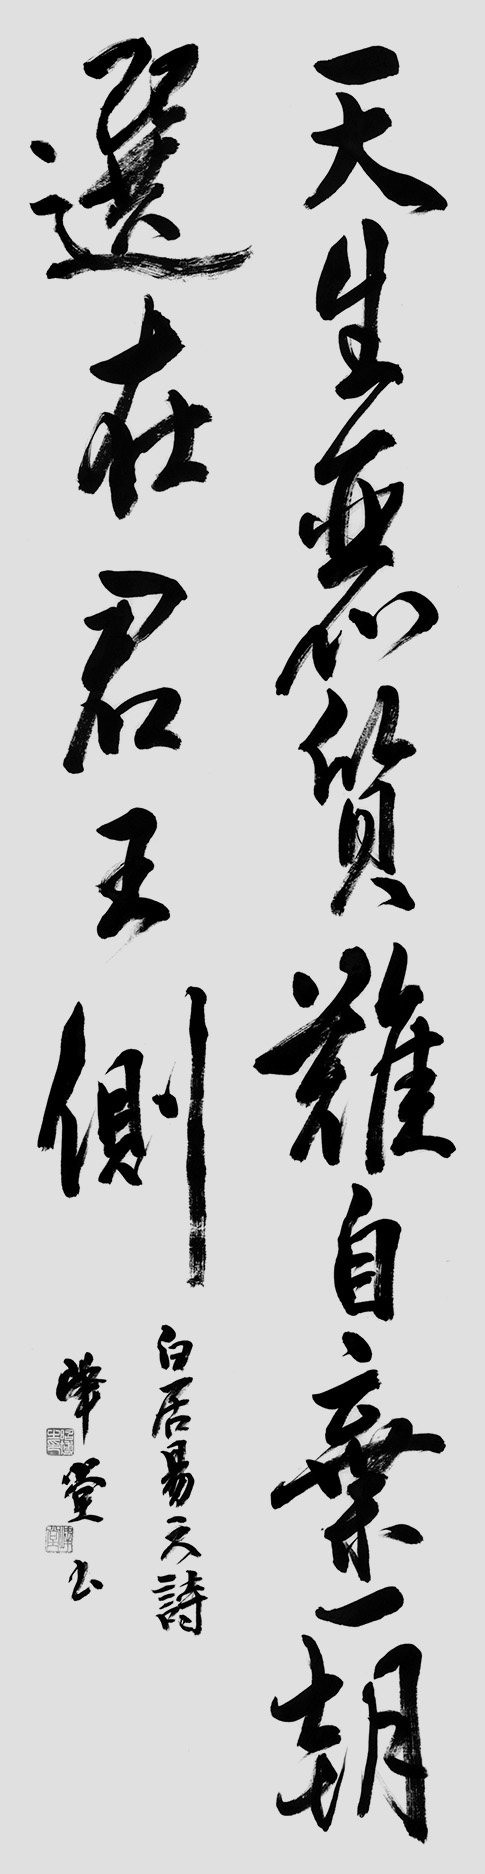 天生麗質難自棄一朝
選在君王側
白居易之詩
峰堂書